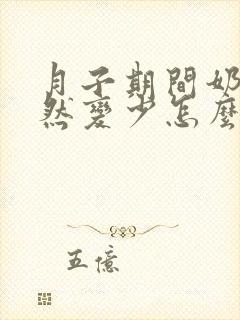 月子期間奶
然變少怎麼
五億